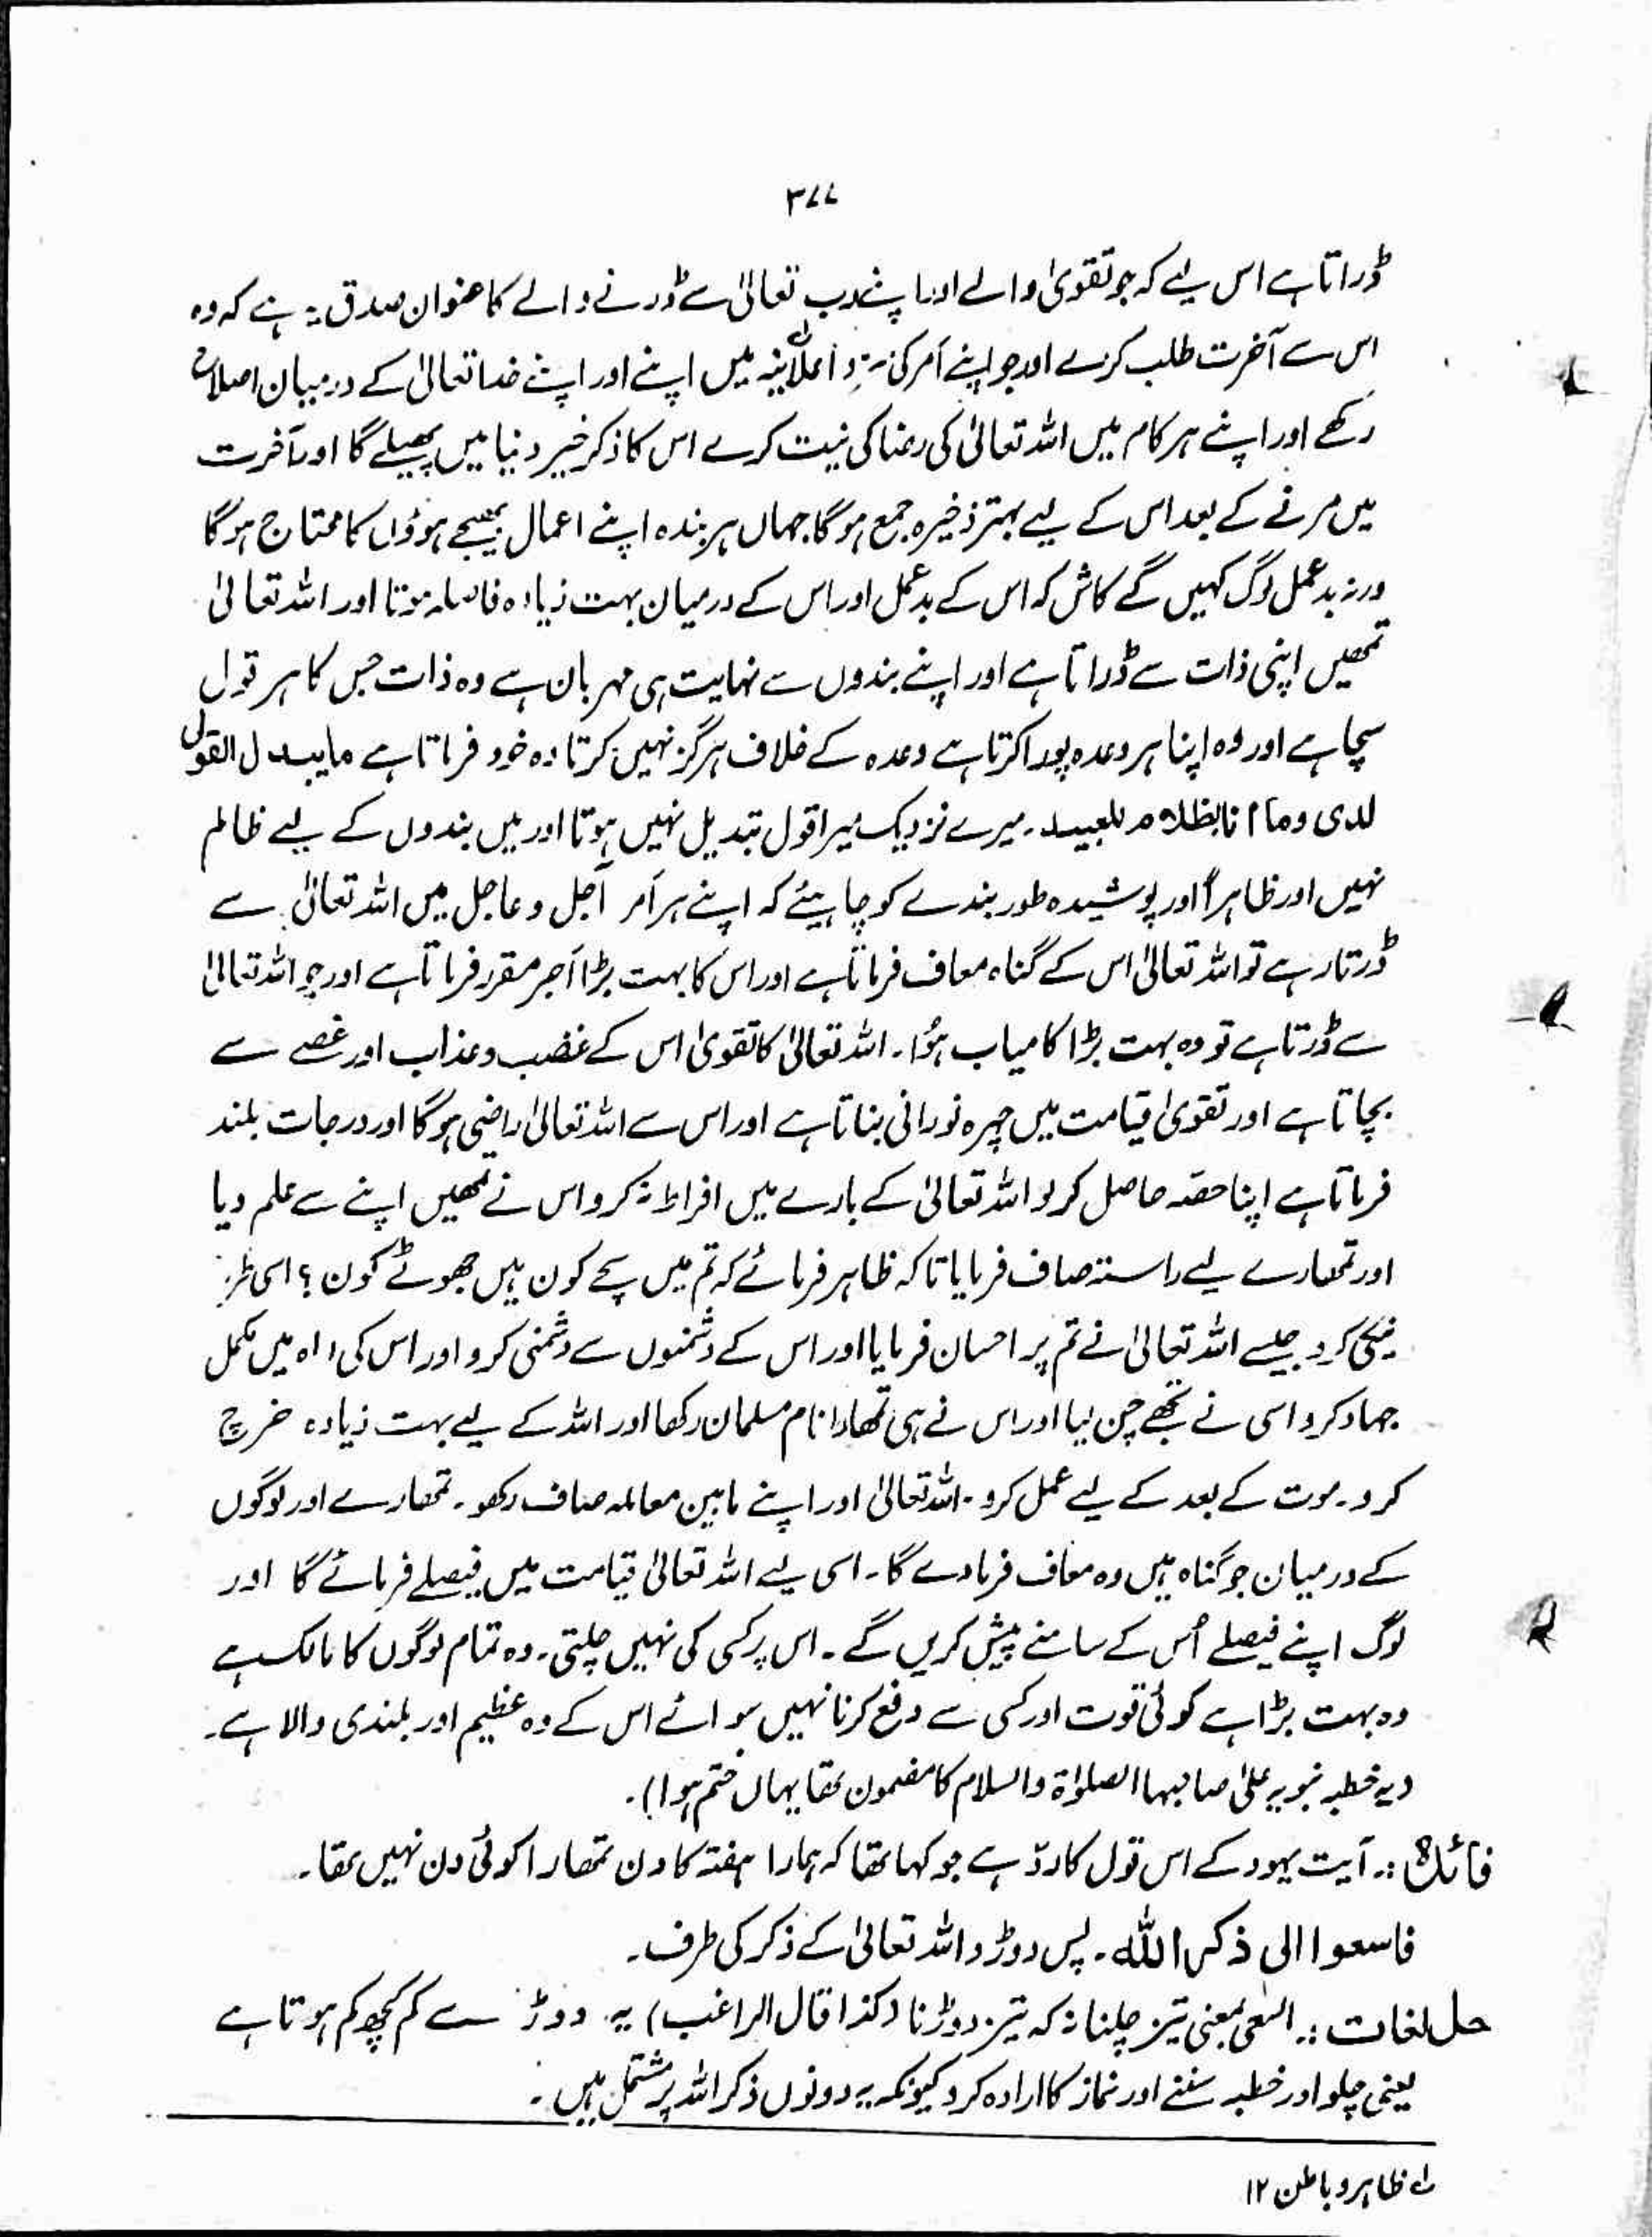 ۳۷۷
ڈراتا ہے اس لیے کہ جو تقویٰ والے اور اپنے رب تعالیٰ سے ڈرنے والے کا عنوان صدق یہ ہے کہ وہ
اس سے آخرت طلب کرے اور جو اپنے اَمر کی سِرّ و اعلانیہ میں اپنے اور اپنے خدا تعالیٰ کے درمیان اصلاح
رکھے اور اپنے ہر کام میں اللہ تعالیٰ کی رضا کی نیت کرے اس کا ذکر خیر دنیا میں پھیلے گا اور آخرت
میں مرنے کے بعد اس کے لیے بہتر ذخیرہ جمع ہو گا جہاں ہر بندہ اپنے اعمال بھیجے ہوؤں کا محتاج ہو گا
ورنہ بدعمل لوگ کہیں گے کاش کہ اس کے بدعمل اور اس کے درمیان بہت زیادہ فاصلہ ہوتا اور اللہ تعالیٰ
تمھیں اپنی ذات سے ڈراتا ہے اور اپنے بندوں سے نہایت ہی مہربان ہے وہ ذات جس کا ہر قول
سچا ہے اور وہ اپنا ہر وعدہ پورا کرتا ہے وعدہ کے خلاف ہرگز نہیں کرتا وہ خود فرماتا ہے مایبدل القول
لدی وما انا بظلام للعبید۔ میرے نزدیک میرا قول تبدیل نہیں ہوتا اور میں بندوں کے لیے ظالم
نہیں اور ظاہراً اور پوشیدہ طور بندے کو چاہیئے کہ اپنے ہر اَمر آجل و عاجل میں اللہ تعالیٰ سے
ڈرتا رہے تو اللہ تعالیٰ اس کے گناہ معاف فرماتا ہے اور اس کا بہت بڑا اَجر مقرر فرماتا ہے اور جو اللہ تعالیٰ
سے ڈرتا ہے تو وہ بہت بڑا کامیاب ہُوا۔ اللہ تعالیٰ کا تقویٰ اس کے غضب و عذاب اور غصے سے
بچاتا ہے اور تقویٰ قیامت میں چہرہ نورانی بناتا ہے اور اس سے اللہ تعالیٰ راضی ہو گا اور درجات بلند
فرماتا ہے اپنا حصہ حاصل کر لو اللہ تعالیٰ کے بارے میں افراط نہ کرو اس نے تمھیں اپنے سے علم دیا
اور تمھارے لیے راستہ صاف فرمایا تاکہ ظاہر فرمائے کہ تم میں سچے کون ہیں جھوٹے کون؟ اسی طرح
نیکی کرو جیسے اللہ تعالیٰ نے تم پر احسان فرمایا اور اس کے دشمنوں سے دشمنی کرو اور اس کی راہ میں مکمل
جہاد کرو اسی نے تجھے چن لیا اور اس نے ہی تمھارا نام مسلمان رکھا اور اللہ کے لیے بہت زیادہ خرچ
کرو۔ موت کے بعد کے لیے عمل کرو۔ اللہ تعالیٰ اور اپنے مابین معاملہ صاف رکھو۔ تمھارے اور لوگوں
کے درمیان جو گناہ ہیں وہ معاف فرما دے گا۔ اسی لیے اللہ تعالیٰ قیامت میں فیصلے فرمائے گا اور
لوگ اپنے فیصلے اُس کے سامنے پیش کریں گے۔ اس پر کسی کی نہیں چلتی۔ وہ تمام لوگوں کا مالک ہے
وہ بہت بڑا ہے کوئی قوت اور کسی سے دفع کرنا نہیں سوائے اس کے وہ عظیم اور بلندی والا ہے۔
(یہ خطبہ نبویہ علیٰ صاحبہا الصلوٰۃ والسلام کا مضمون تھا یہاں ختم ہوا)۔
فائدہ:۔ آیت یہود کے اس قول کا ردّ ہے جو کہا تھا کہ ہمارا ہفتہ کا دن تمھارا کوئی دن نہیں تھا۔
فاسعوا الی ذکر اللہ۔ پس دوڑو اللہ تعالیٰ کے ذکر کی طرف۔
حل لغات:۔ السعی بمعنی تیز چلنا نہ کہ تیز دوڑنا (کذا قال الراغب) یہ دوڑ سے کم کچھ کم ہوتا ہے
یعنی چلو اور خطبہ سننے اور نماز کا ارادہ کرو کیونکہ یہ دونوں ذکر اللہ پر مشتمل ہیں۔
لے ظاہر و باطن ۱۲